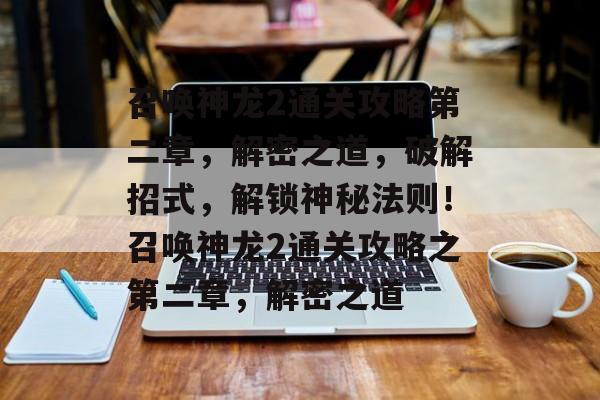 召唤神龙2通关攻略第
二章，解密之道，破解
招式，解锁神秘法则！
召唤神龙2通关攻略之
第二章，解密之道